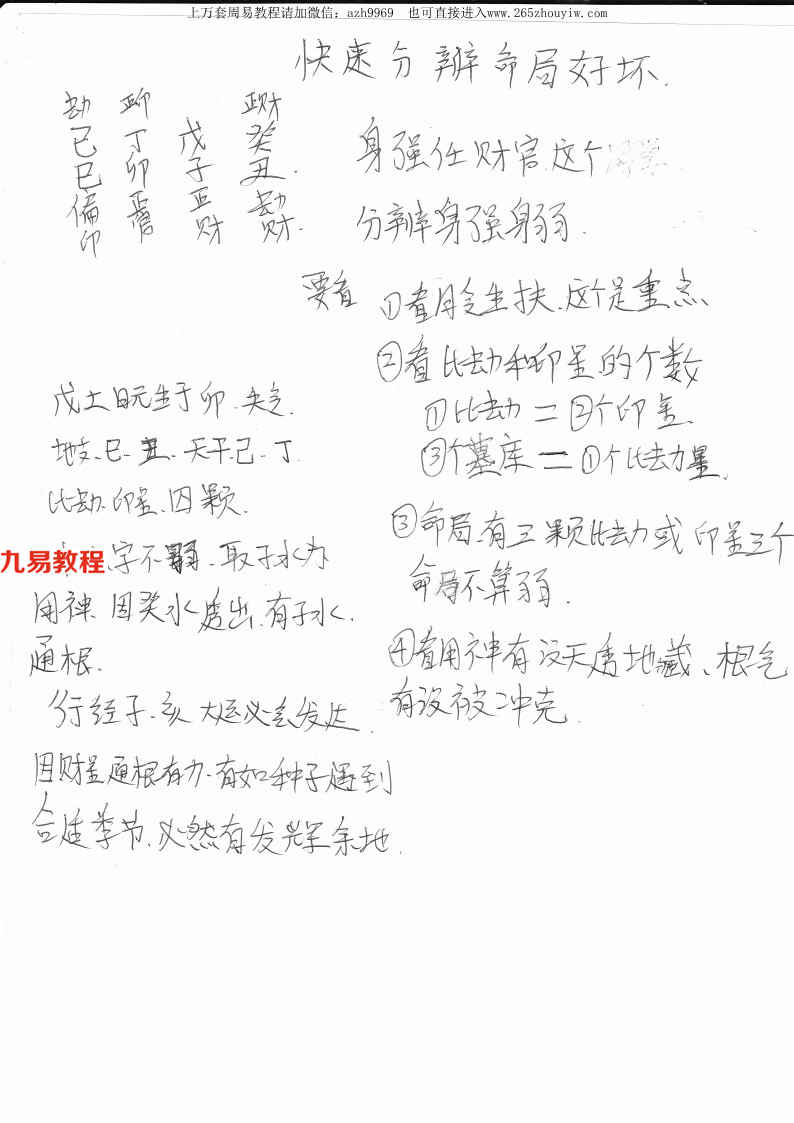 上万套周易教程请加微信：azh9969 也可直接进入www.265zhouyiw.com
快速分辨命局好坏.
劫 正印 正财
己 丁 戊 癸
巳 卯 子 丑.
偏印 正官 正财 劫财.
身强任财官.这个
分辨身强身弱.
要看
①看月令生扶.这个是重点、
②看比劫和印星.的个数
①比劫＝②个印星.
③个墓库＝①个比劫星.
③命局.有三颗比劫或印星三个
命局不算弱.
④看用神有没天透地藏、根气
有没被冲克.
戊土日元生于卯.失令.
地支、巳.丑.天干.己.丁
比劫.印星.四颗.
九易教程
字不弱.取子水为
用神.因癸水透出.有子水.
通根.
行经子.亥大运必会发达.
因财星通根有力.有如种子遇到
合适季节.必然有发挥余地.